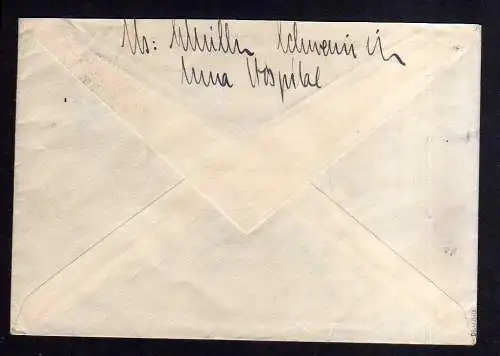 Abs: Müller Schwerin i/M
Anna Hospital